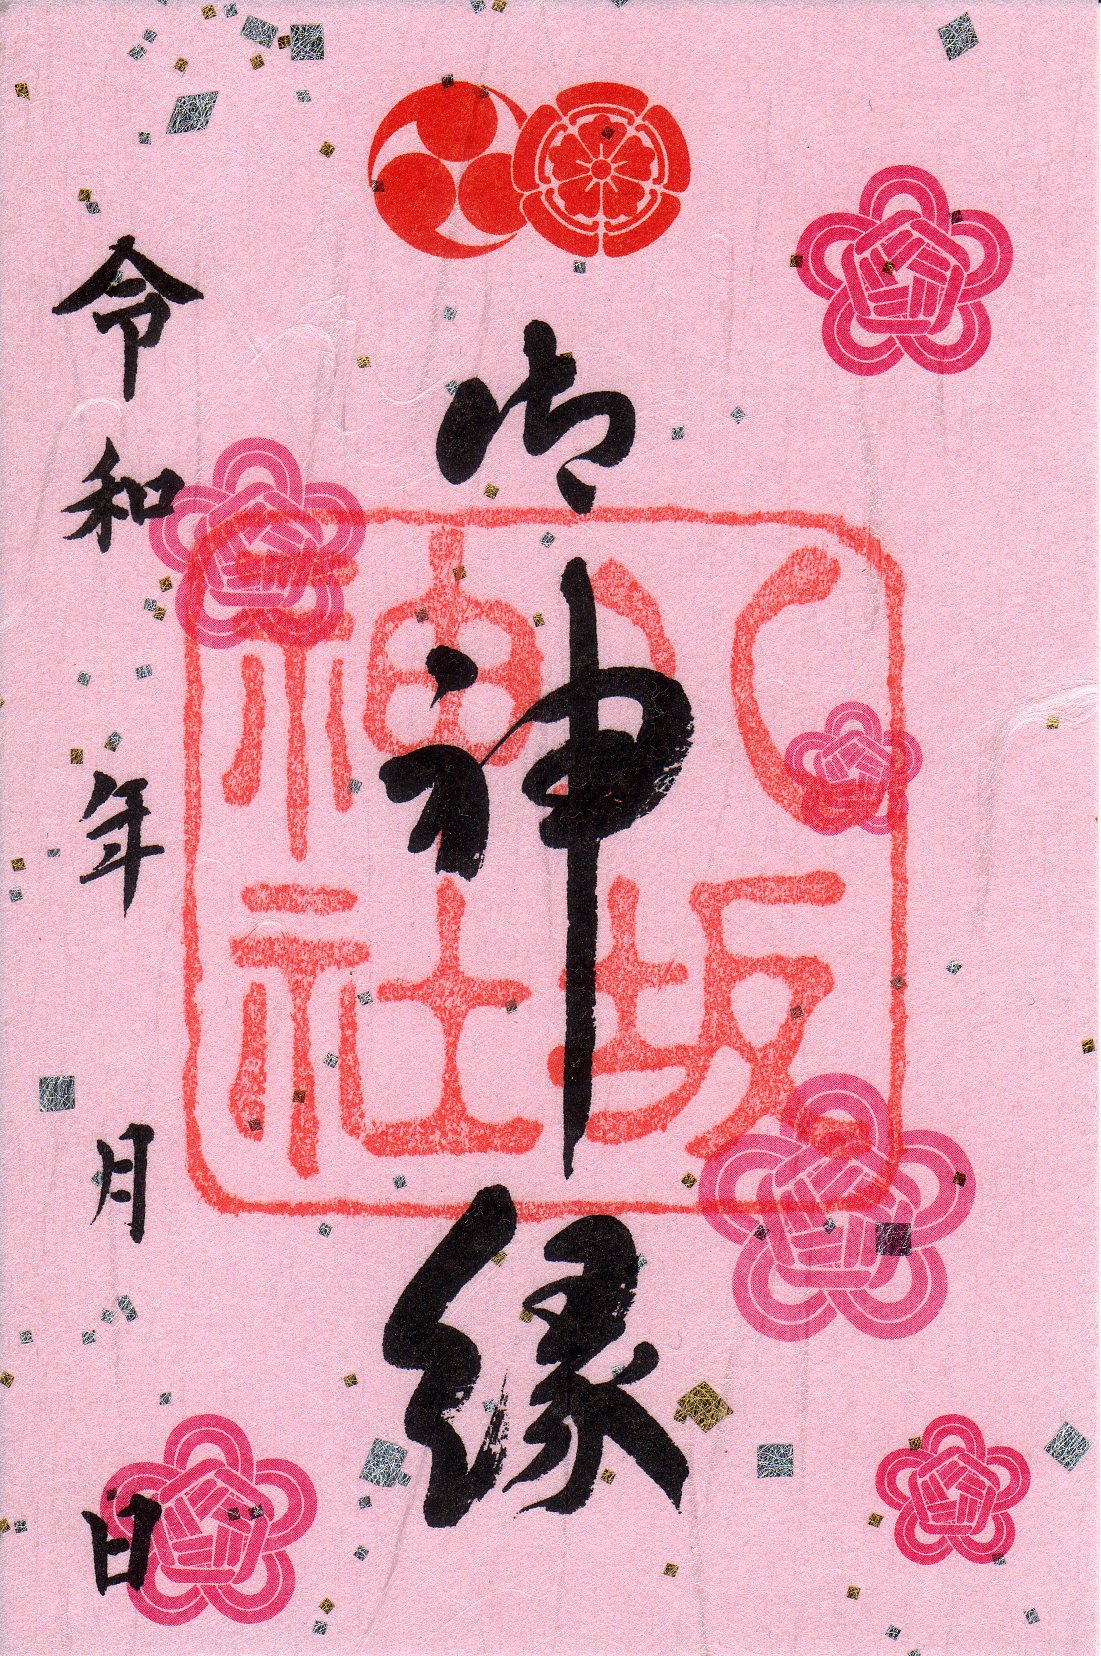 御神縁
八坂
神社
令和 年 月 日